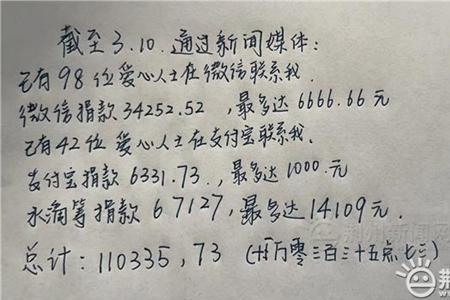 截至3.10.通过新闻媒体:
已有98位爱心人士在微信联系我.
微信捐款34252.52,最多达6666.66元
已有42位爱心人士在支付宝联系我.
支付宝捐款6331.73.,最多达1000.元
水滴筹捐款67127,最多达14109元.
总计:110335,73 (十万零三百三十五点七三)
荆州新闻网
荆